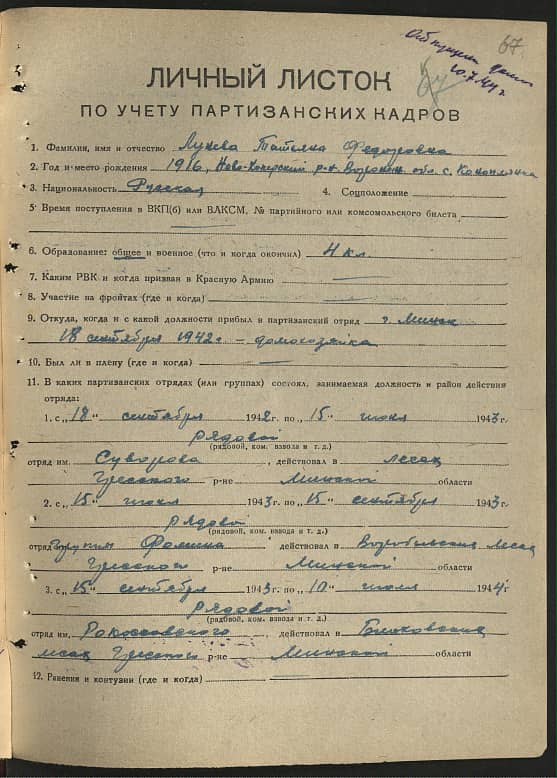 67.
67
10.7.44 г
ЛИЧНЫЙ ЛИСТОК
ПО УЧЕТУ ПАРТИЗАНСКИХ КАДРОВ
1. Фамилия, имя и отчество Лунева Татьяна Федоровна
2. Год и место рождения 1916, Ново-Хоперский р-н Воронеж. обл. с.
3. Национальность Русская 4. Соцположение
5. Время поступления в ВКП(б) или ВЛКСМ, № партийного или комсомольского билета
6. Образование: общее и военное (что и когда окончил) 4 кл.
7. Каким РВК и когда призван в Красную Армию
8. Участие на фронтах (где и когда)
9. Откуда, когда и с какой должности прибыл в партизанский отряд г. Минск
18 сентября 1942 г. – домохозяйка
10. Был ли в плену (где и когда)
11. В каких партизанских отрядах (или группах) состоял, занимаемая должность и район действия
отряда:
1. с „18" сентября 1942 г. по „15" июня 1943 г.
рядовой
(рядовой, ком. взвода и т. д.)
отряд им. Суворова, действовал в лесах
Гресского р-не Минской области
2. с „15" июня 1943 г. по „15" сентября 1943 г.
рядовой
(рядовой, ком. взвода и т. д.)
отряд группы Фомина действовал в лесах
Гресского р-не Минской области
3. с „15" сентября 1943 г. по „10" июля 1944 г
рядовой
(рядовой, ком. взвода и т. д.)
отряд им. Рокоссовского, действовал в
лесах Гресского р-не Минской области
12. Ранения и контузии (где и когда)